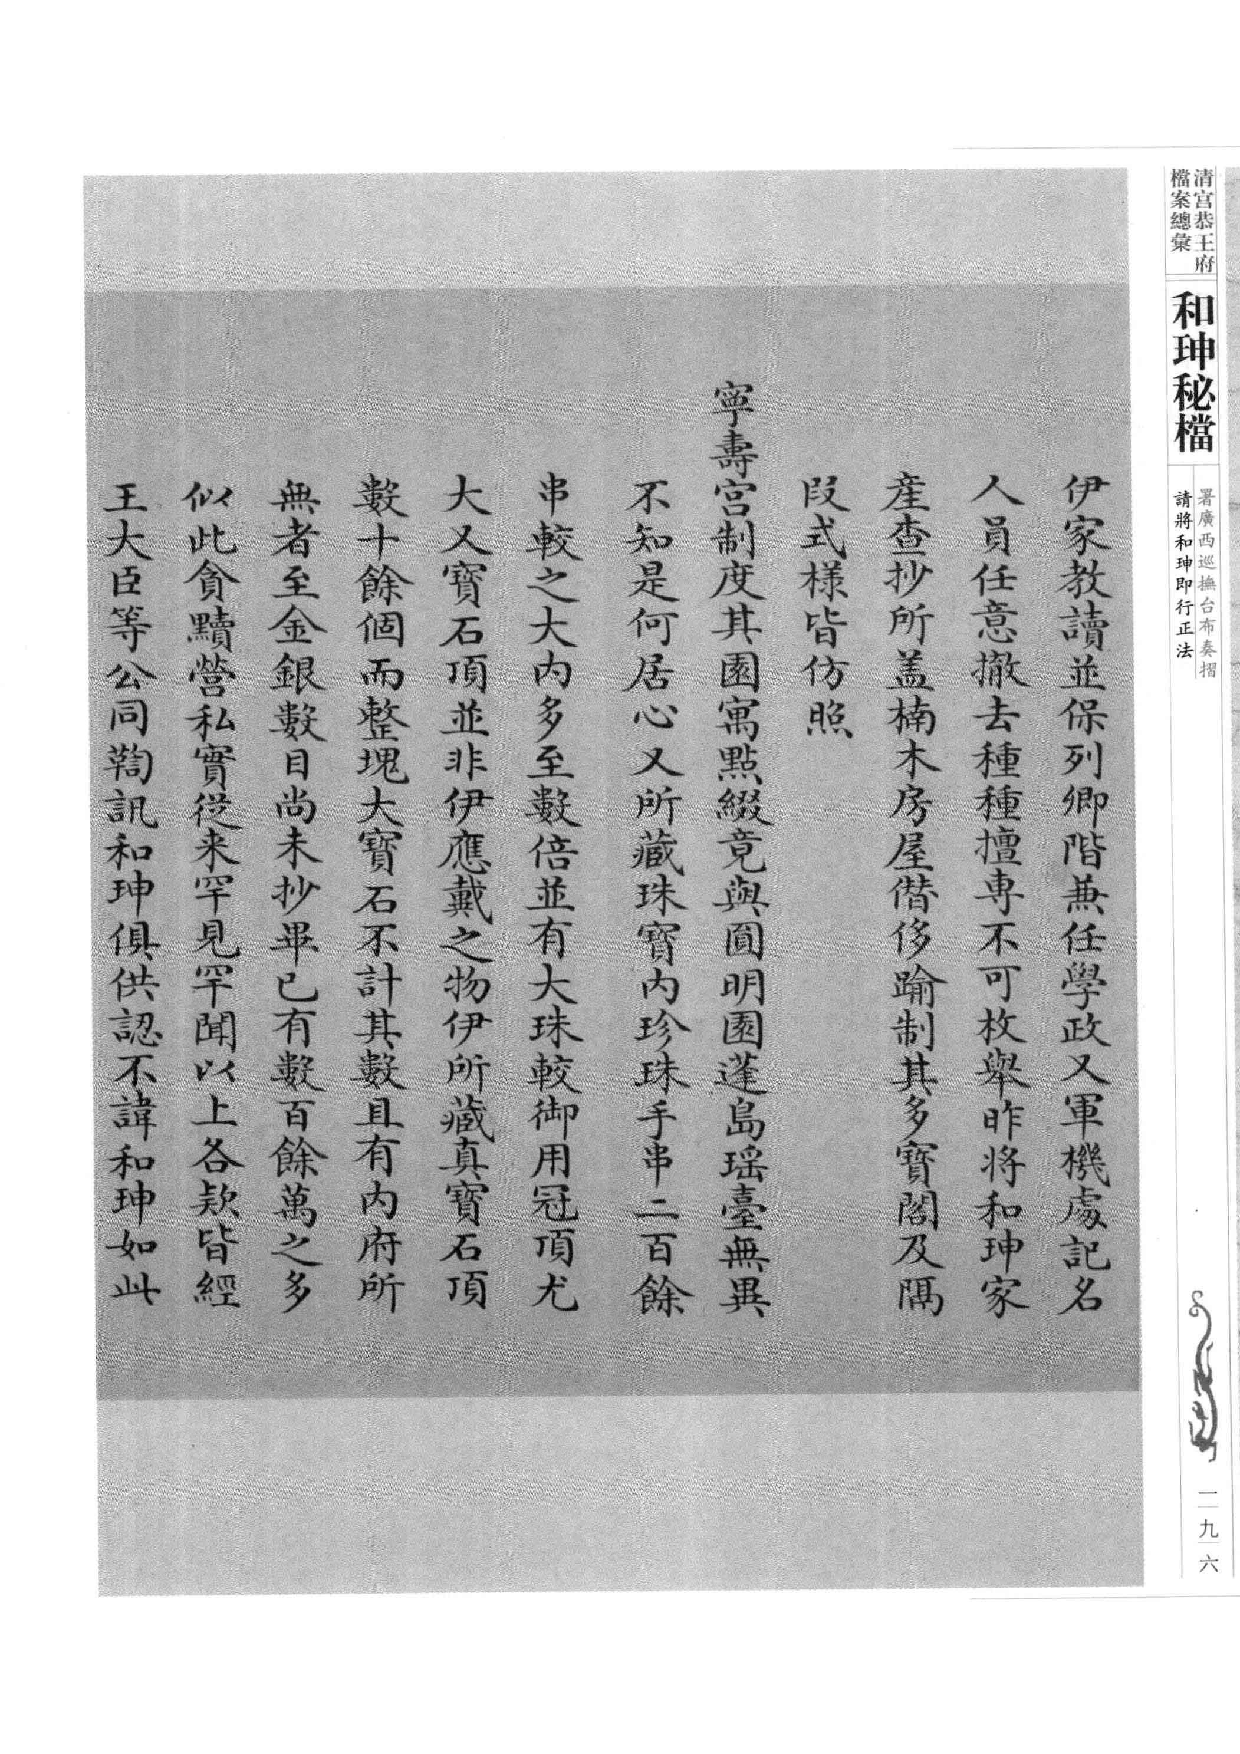 清宮恭王府
檔案總彙
和珅秘檔
署廣西巡撫台布奏摺
請將和珅即行正法
伊家教讀並保列卿階兼任學政又軍機處記名
人員任意撤去種種擅專不可枚舉昨將和珅家
産查抄所盖楠木房屋僭侈踰制其多寶閣及隔
段式樣皆仿照
寧壽宮制度其園寓點綴竟與圓明園蓬島瑶臺無異
不知是何居心又所藏珠寶内珍珠手串二百餘
串較之大内多至數倍並有大珠較御用冠頂尤
大又寶石頂並非伊應戴之物伊所藏真寶石頂
數十餘個而整塊大寶石不計其數且有内府所
無者至金銀數目尚未抄畢已有數百餘萬之多
似此貪黷營私實從来罕見罕聞以上各欵皆經
王大臣等公同鞫訊和珅俱供認不諱和珅如此
一九六